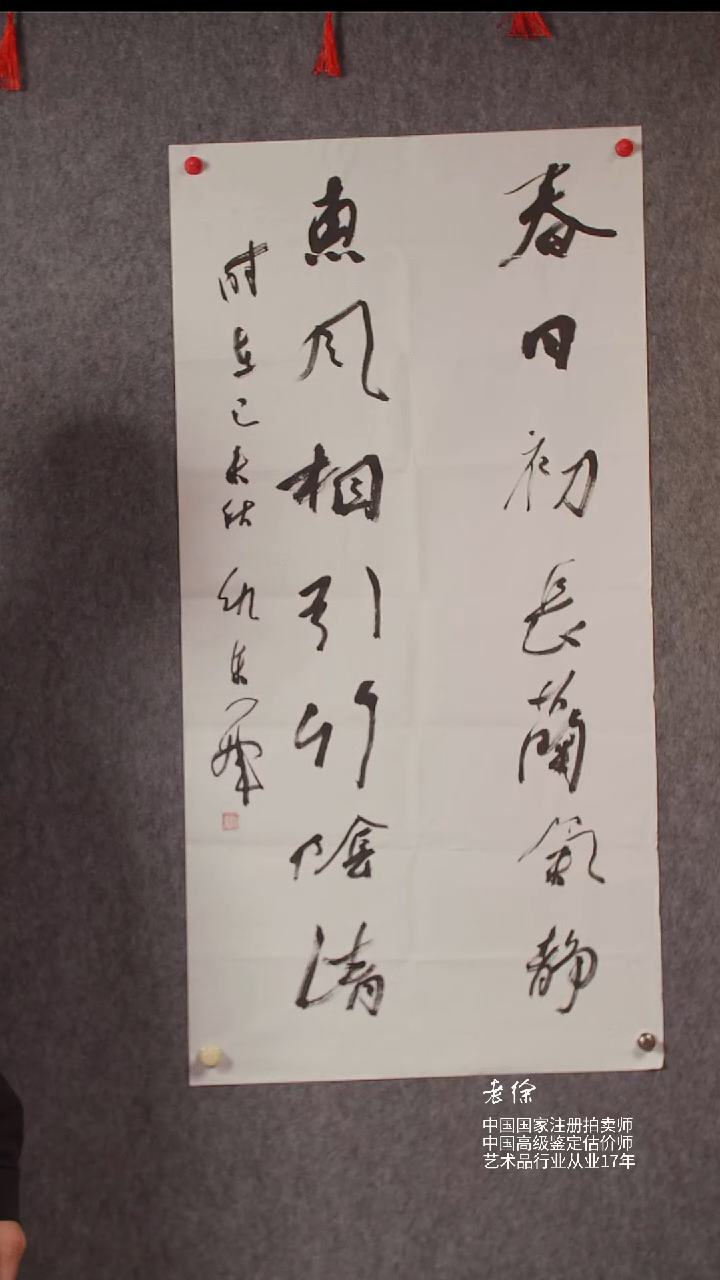 春日初長蘭氣静
惠風相引竹陰清
时在己未
老徐
中国国家注册拍卖师
中国高级鉴定估价师
艺术品行业从业17年